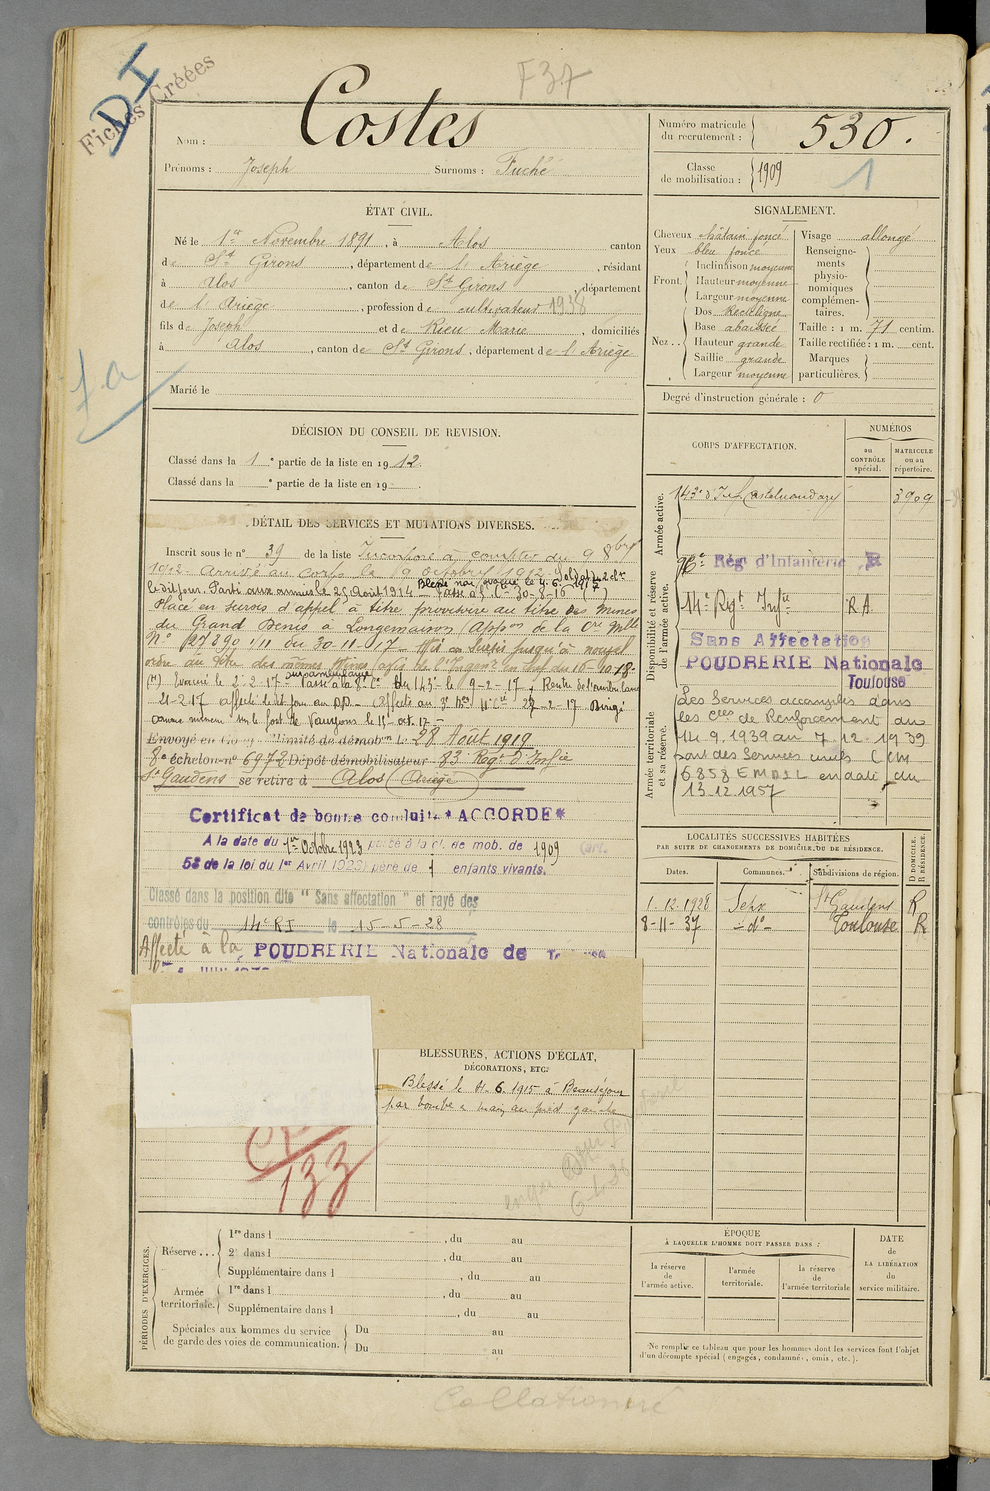 Fiches Créées
D I
F37
Nom : Costes
Prénoms : Joseph Surnoms : Fuché
Numéro matricule du recrutement : 530.
Classe de mobilisation : 1909
1
ÉTAT CIVIL.
Né le 1er Novembre 1891, à Alos canton
de St Girons, département de l'Ariège, résidant
à Alos, canton de St Girons, département
de l'Ariège, profession de cultivateur 1938
fils de Joseph et de Rieu Marie, domiciliés
à Alos, canton de St Girons, département de l'Ariège
Marié le
SIGNALEMENT.
Cheveux châtain foncé
Yeux bleu foncé
Front. Inclinaison moyenne
Hauteur moyenne
Largeur moyenne
Nez.. Dos Rectiligne
Base abaissée
Hauteur grande
Saillie grande
Largeur moyenne
Visage allongé
Renseignements physionomiques complémentaires.
Taille : 1 m. 71 centim.
Taille rectifiée : 1 m. cent.
Marques particulières.
Degré d'instruction générale : 0
1a
DÉCISION DU CONSEIL DE REVISION.
Classé dans la 1e partie de la liste en 1912.
Classé dans la e partie de la liste en 19
DÉTAIL DES SERVICES ET MUTATIONS DIVERSES.
Inscrit sous le n° 39 de la liste Incorporé à compter du 9 8bre
1912. Arrivé au corps le 9 octobre 1912. Soldat de 2e cl
le dit jour. Parti aux armées le 25 Août 1914 — Passé à 5e Cie 30-8-16 (*)
Blessé non évacué le 4.6.1917
Placé en sursis d'appel à titre provisoire au titre des mines
du Grand Denis à Longemaison (Appon de la Con Mlle
N° 127290 1/11 du 30-11-17 — Mis en sursis jusqu'à nouvel
ordre au titre des mêmes Mines
(*) Evacué le 2-2-17 Passé à la 8e Cie du 143e le 9-2-17, Rentré de l'ambulance
21-2-17 affecté le dit jour au DD — Affecté au 3e 11e Cie 28-2-17 Dirigé
comme mineur sur le fort de Vaujours le 11 oct. 17 —
Envoyé en congé illimité de démobon le 28 Août 1919
8e échelon n° 6972 Dépôt démobilisateur 83e Régt d'Infie
St Gaudens se retire à Alos (Ariège)
Certificat de bonne conduite "ACCORDÉ"
A la date du 1er Octobre 1923 passé à la cl. de mob. de 1909 (art.
58 de la loi du 1er Avril 1923) père de 1 enfants vivants.
Classé dans la position dite "Sans affectation" et rayé des
contrôles du 14e RI le 15-5-28
Affecté à la POUDRERIE Nationale de
CORPS D'AFFECTATION.
NUMÉROS
au CONTRÔLE spécial.
MATRICULE ou au répertoire.
Armée active.
143e d'Inf Castelnaudary 3909
Disponibilité et réserve de l'armée active.
96e Rég. d'Infanterie
14e Rgt Infie R A
Sans Affectation
POUDRERIE Nationale
Toulouse
Armée territoriale et sa réserve.
Les Services accomplis dans
les Cies de Renforcement du
14.9.1939 au 7.12.1939
sont des Services civils (CM
6.858 EMDIL en date du
13.12.1957
LOCALITÉS SUCCESSIVES HABITÉES
PAR SUITE DE CHANGEMENTS DE DOMICILE OU DE RÉSIDENCE.
Dates. Communes. Subdivisions de région. D DOMICILE. R RÉSIDENCE.
1.12.1928 Seix St Gaudens R
8-11-37 — do — Toulouse R
BLESSURES, ACTIONS D'ÉCLAT,
DÉCORATIONS, ETC.
Blessé le 11.6.1915 à Beauséjour
par bombe à main au pied gauche
133
PÉRIODES D'EXERCICES.
Réserve... 1re dans l , du au
2e dans l , du au
Supplémentaire dans l , du au
Armée territoriale. 1re dans l , du au
Supplémentaire dans l , du au
Spéciales aux hommes du service de garde des voies de communication. Du au
Du au
ÉPOQUE
À LAQUELLE L'HOMME DOIT PASSER DANS :
la réserve de l'armée active.
l'armée territoriale.
la réserve de l'armée territoriale
DATE de LA LIBÉRATION du service militaire.
Ne remplir ce tableau que pour les hommes dont les services font l'objet
d'un décompte spécial (engagés, condamnés, omis, etc.).
Collationné